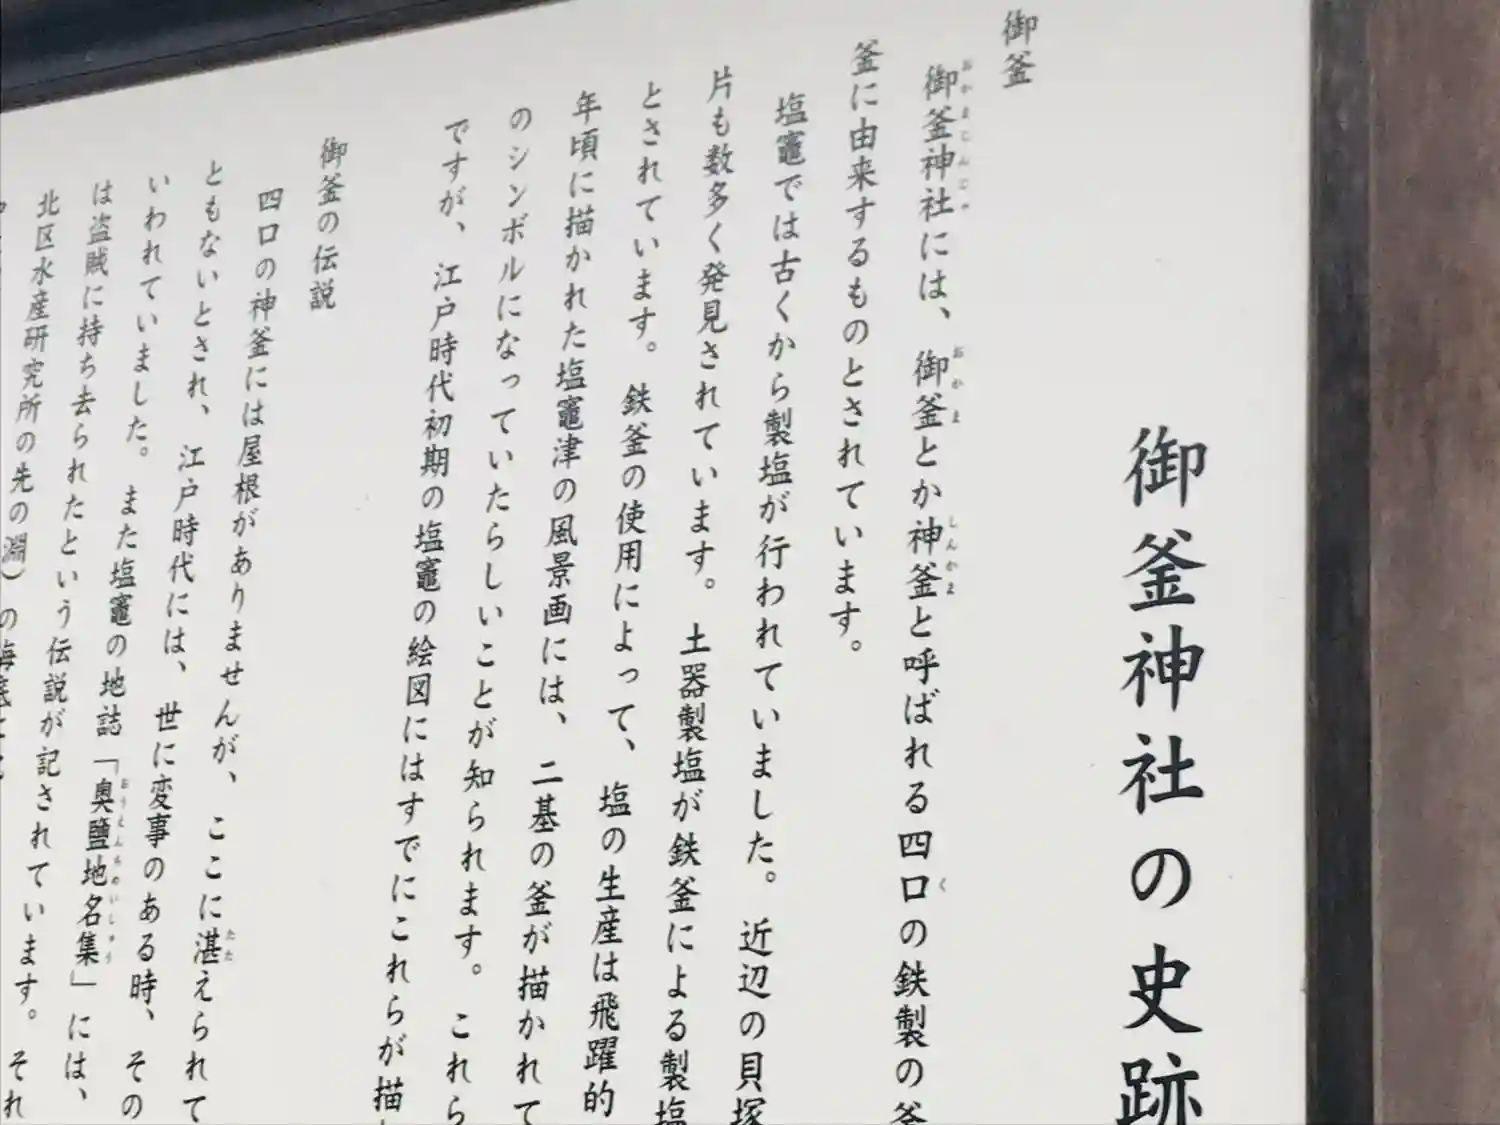 御釜神社の史跡
御釜
御釜神社には、御釜とか神釜と呼ばれる四口の鉄製の釜
釜に由来するものとされています。
塩竈では古くから製塩が行われていました。近辺の貝塚
片も数多く発見されています。土器製塩が鉄釜による製塩
とされています。鉄釜の使用によって、塩の生産は飛躍的
年頃に描かれた塩竈津の風景画には、二基の釜が描かれて
のシンボルになっていたらしいことが知られます。これら
ですが、江戸時代初期の塩竈の絵図にはすでにこれらが描
御釜の伝説
四口の神釜には屋根がありませんが、ここに湛えられて
ともないとされ、江戸時代には、世に変事のある時、その
いわれていました。また塩竈の地誌「奥鹽地名集」には、
は盗賊に持ち去られたという伝説が記されています。それ
北区水産研究所の先の淵）の海底